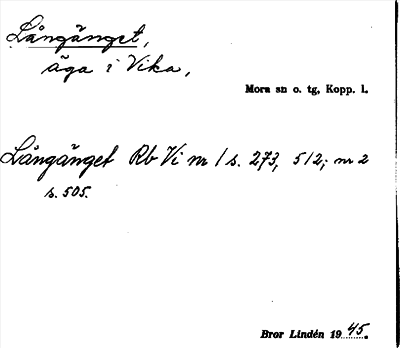 Långänget,
äga i Vika,
Mora sn o. tg, Kopp. l.
Långänget Rb Vi nr 1 s. 273, 512; nr 2
s. 505.
Bror Lindén 1945.